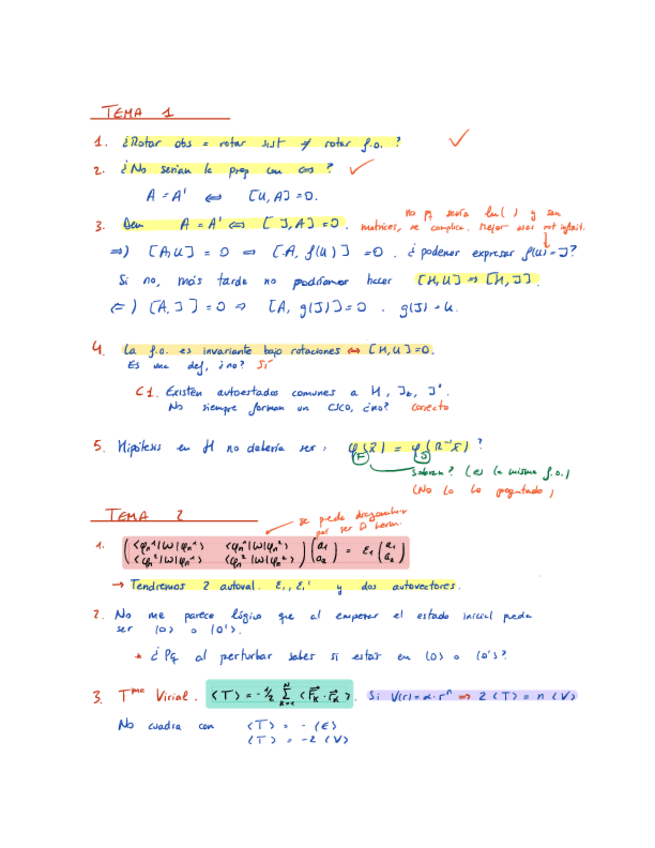 TEMA 1
1. ¿Rotar obs = rotar sist ≠ rotar f.o. ? ✓
2. ¿No serían la prop con ? ✓
A = A' ⇔ [U, A] = 0.
3. Dem A = A' ⇔ [J, A] = 0.
no pq sería ln( ) y son
matrices, se complica. Mejor usar rot infinit.
⇒) [A, U] = 0 ⇒ [A, f(U)] = 0. ¿podemos expresar f(U) = J?
Si no, más tarde no podríamos hacer [H, U] ⇒ [H, J].
⇐) [A, J] = 0 ⇒ [A, g(J)] = 0. g(J) = U.
4. La f.o. es invariante bajo rotaciones ⇔ [H, U] = 0.
Es una def, ¿no? Sí
C1. Existen autoestados comunes a H, J
No siempre forman un CSCO, ¿no? Correcto
5. Hipótesis en H no debería ser: φ = φ(R⁻¹x̄) ?
Sobran? (es la misma f.o.)
(No lo he preguntado)
TEMA 2
se puede diagonalizar
por ser D herm.
1. (<φn¹|W|φn¹> <φn¹|W|φn²>) (a₁) = ε₁ (a₁)
(<φn²|W|φn¹> <φn²|W|φn²>) (a₂) (a₂)
→ Tendremos 2 autoval. ε₁, ε₁' y dos autovectores.
2. No me parece lógico que al empezar el estado inicial pueda
ser |0> o |0'>.
* ¿Pq al perturbar saber si estar en |0> o |0'>?
3. Tma Virial. <T> = -½ Σ <F⃗k · r⃗k>. Si V(r) = α·rⁿ ⇒ 2<T> = n<V>
No cuadra con <T> = -<E>
<T> = -2<V>